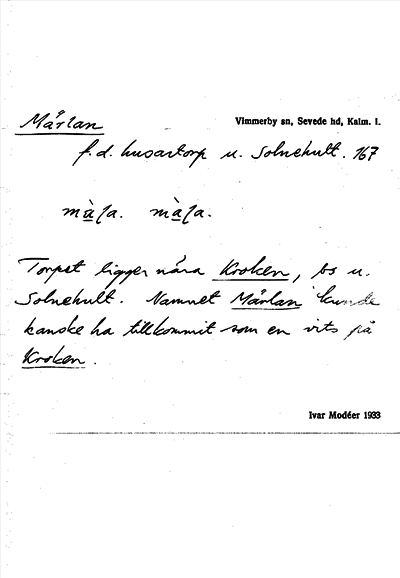 Märlan
Vimmerby sn, Sevede hd, Kalm. l.
f.d. husartorp u. Solnehult. 167
Torpet ligger nära Kroken, bs u.
Solnehult. Namnet Märlan kunde
kanske ha tillkommit som en vits på
Kroken.
Ivar Modéer 1933